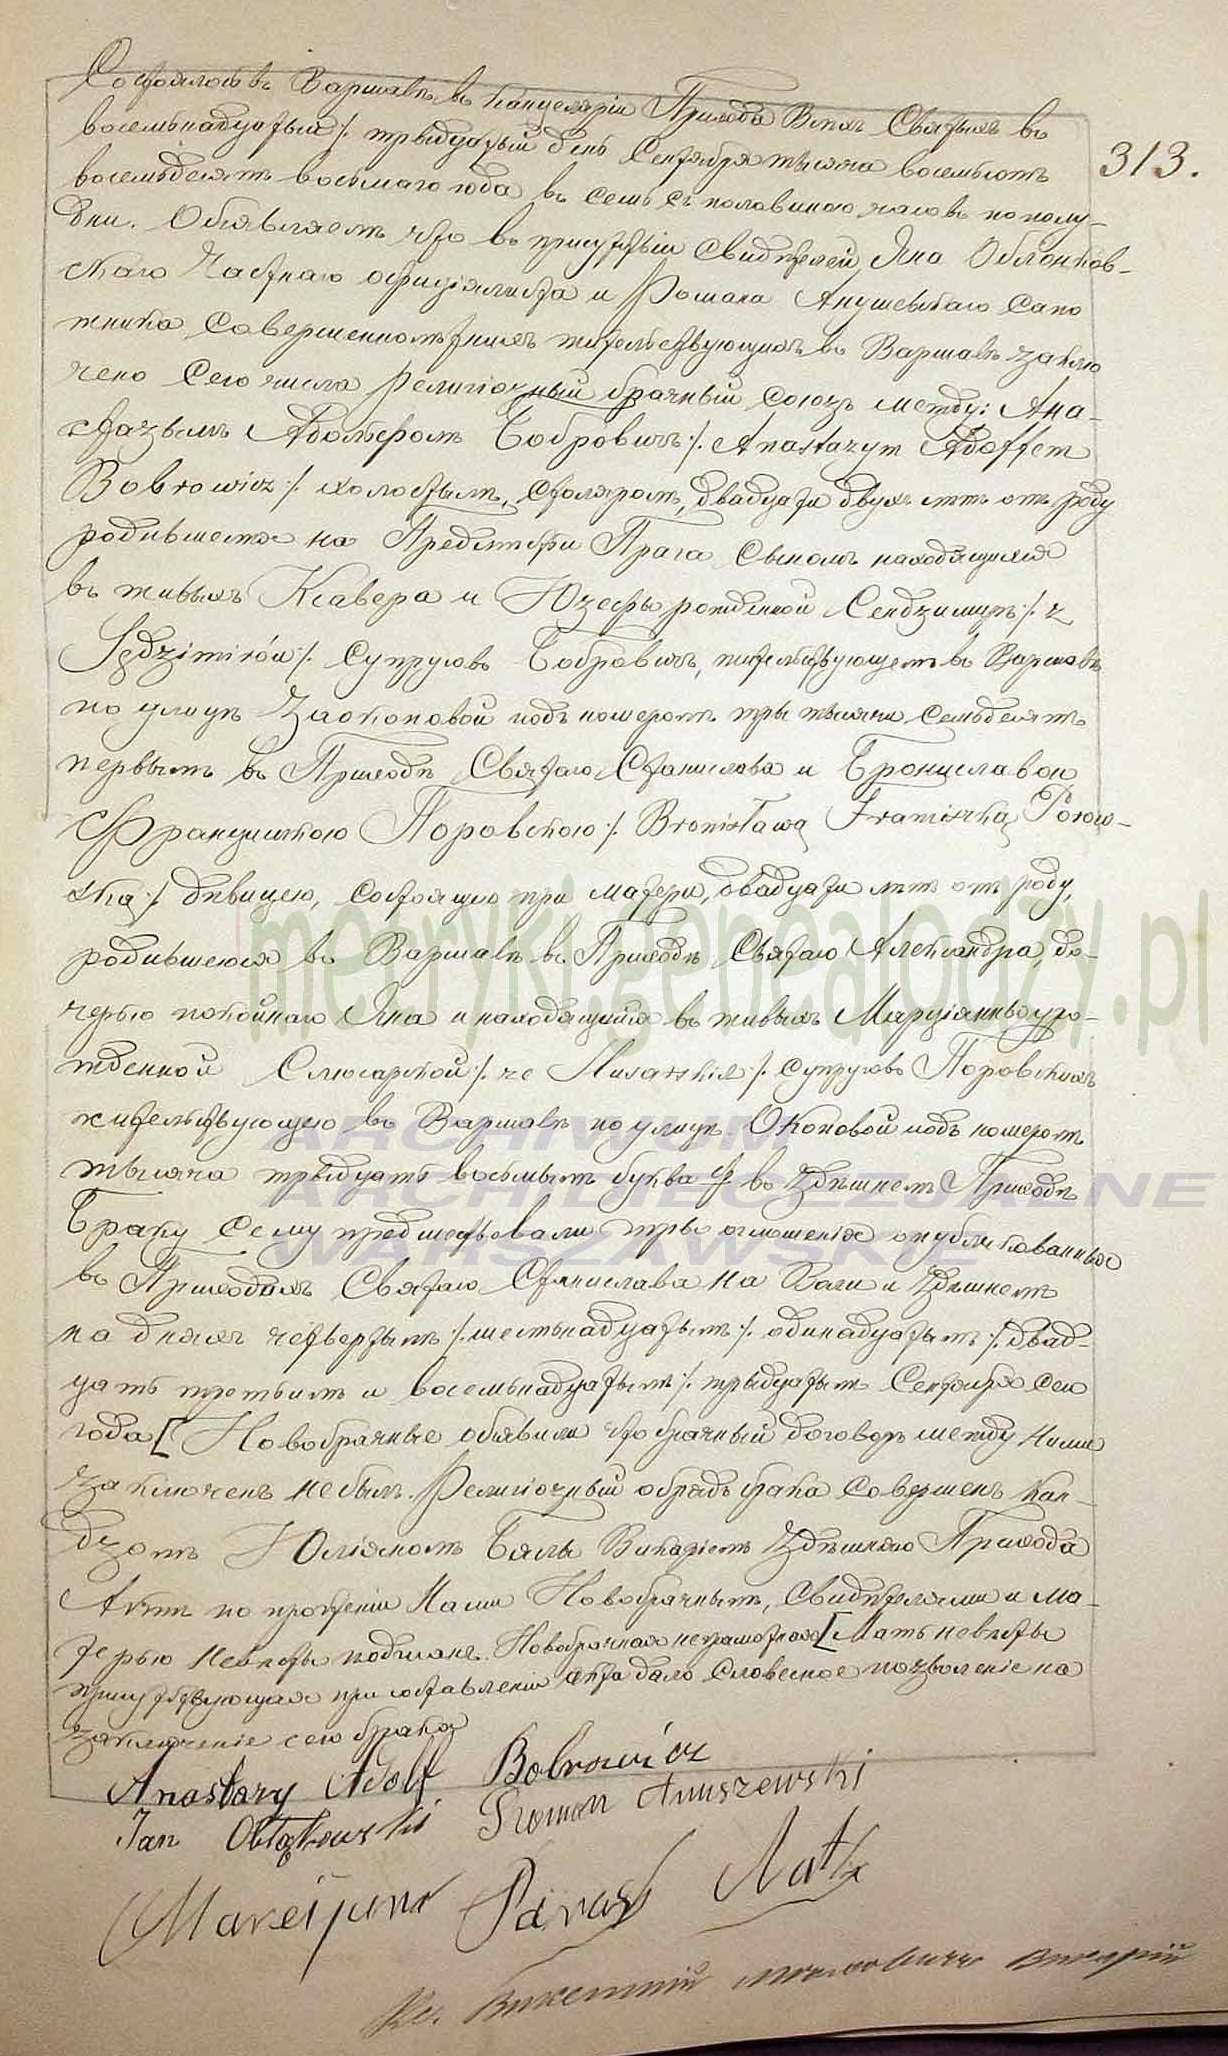 Состоялось въ Варшавѣ въ Канцеляріи Прихода Всѣхъ Святыхъ въ
восемьнадцатый /. тридцатый день Сентября тысяча восемьсотъ
313.
восемьдесятъ восьмаго года въ семь съ половиною часовъ пополу-
дни. Объявляемъ что въ присутствіи свидѣтелей Яна Облонков-
скаго Частнаго официялиста и Романа Анушевскаго Сапо
жника совершеннолѣтнихъ жительствующихъ въ Варшавѣ заклю
чено сего числа религіозный брачный союзъ между: Ана-
стазымъ Адольфомъ Бобровичъ /. Anastazym Adolfem
Bobrowicz /. холостымъ, столяромъ, двадцати двухъ лѣтъ отъ роду
родившемся на Предмѣстіи Прага сыномъ находящихся
въ живыхъ Ксавера и Юзефы рожденной Сендзимиръ /. z
Sędzimirów /. супруговъ Бобровичъ, жительствующемъ въ Варшавѣ
по улицѣ Заокоповой подъ номеромъ три тысячи семьдесятъ
первымъ въ Приходѣ Святаго Станислава и Брониславою
Францишкою Поровскою /. Bronisławą Franciszką Porow-
ską /. дѣвицею, состоящею при матери, двадцати лѣтъ отъ роду,
родившеюся въ Варшавѣ въ Приходѣ Святаго Александра, до-
черью покойнаго Яна и находящейся въ живыхъ Марціянны уро-
жденной Слюсарской /. супруговъ Поровскихъ
жительствующею въ Варшавѣ по улицѣ Окоповой подъ номеромъ
тысяча тридцать восьмымъ буква ф. въ здѣшнемъ Приходѣ
Браку сему предшествовали три оглашенія опубликованныя
въ Приходахъ Святаго Станислава на Воли и здѣшнемъ
на дняхъ четвертымъ /. шестьнадцатымъ /. одинадцатымъ /. двад-
цать третьимъ и восемьнадцатымъ /. тридцатымъ Сентября сего
года [ Новобрачные объявили что брачный договоръ между ними
заключенъ небылъ. Религіозный обрядъ брака совершенъ Ксен-
дзомъ Юліяномъ Бялы Викаріемъ здѣшняго Прихода
Актъ по прочтеніи Нами Новобрачнымъ, Свидѣтелями и ма-
терью невѣсты подписанъ. Новобрачная неграмотная [ Мать невѣсты
присутствующая при составленіи акта дала словесное позволеніе на
заключеніе сего брака
Anastazy Adolf Bobrowicz
Jan Obłąkowski Roman Anuszewski